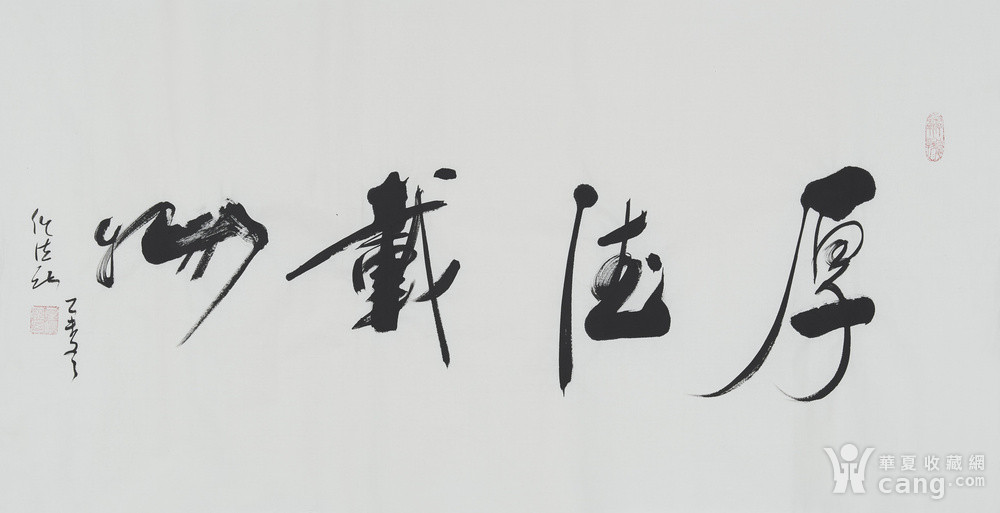 厚德載物
乙未冬
華夏收藏網
cang.com